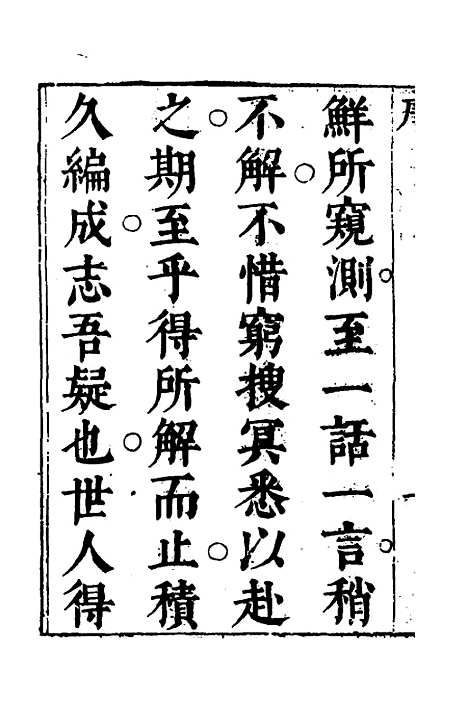 鮮所窺測。至一話一言。稍
不解。不惜窮搜冥悉以赴
之。期至乎得所解而止。積
久編成。志吾疑也。世人得